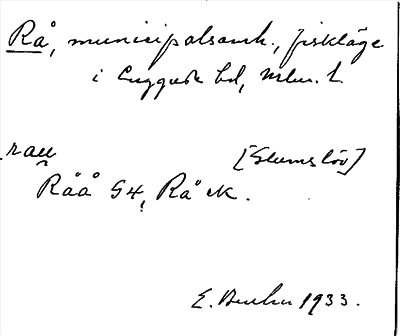 Rå, municipalsamh., fiskläge
i Luggude hd, Mlm. l.
rau [Glumslöv]
Råå G4, Rå ek.
E. 1933.